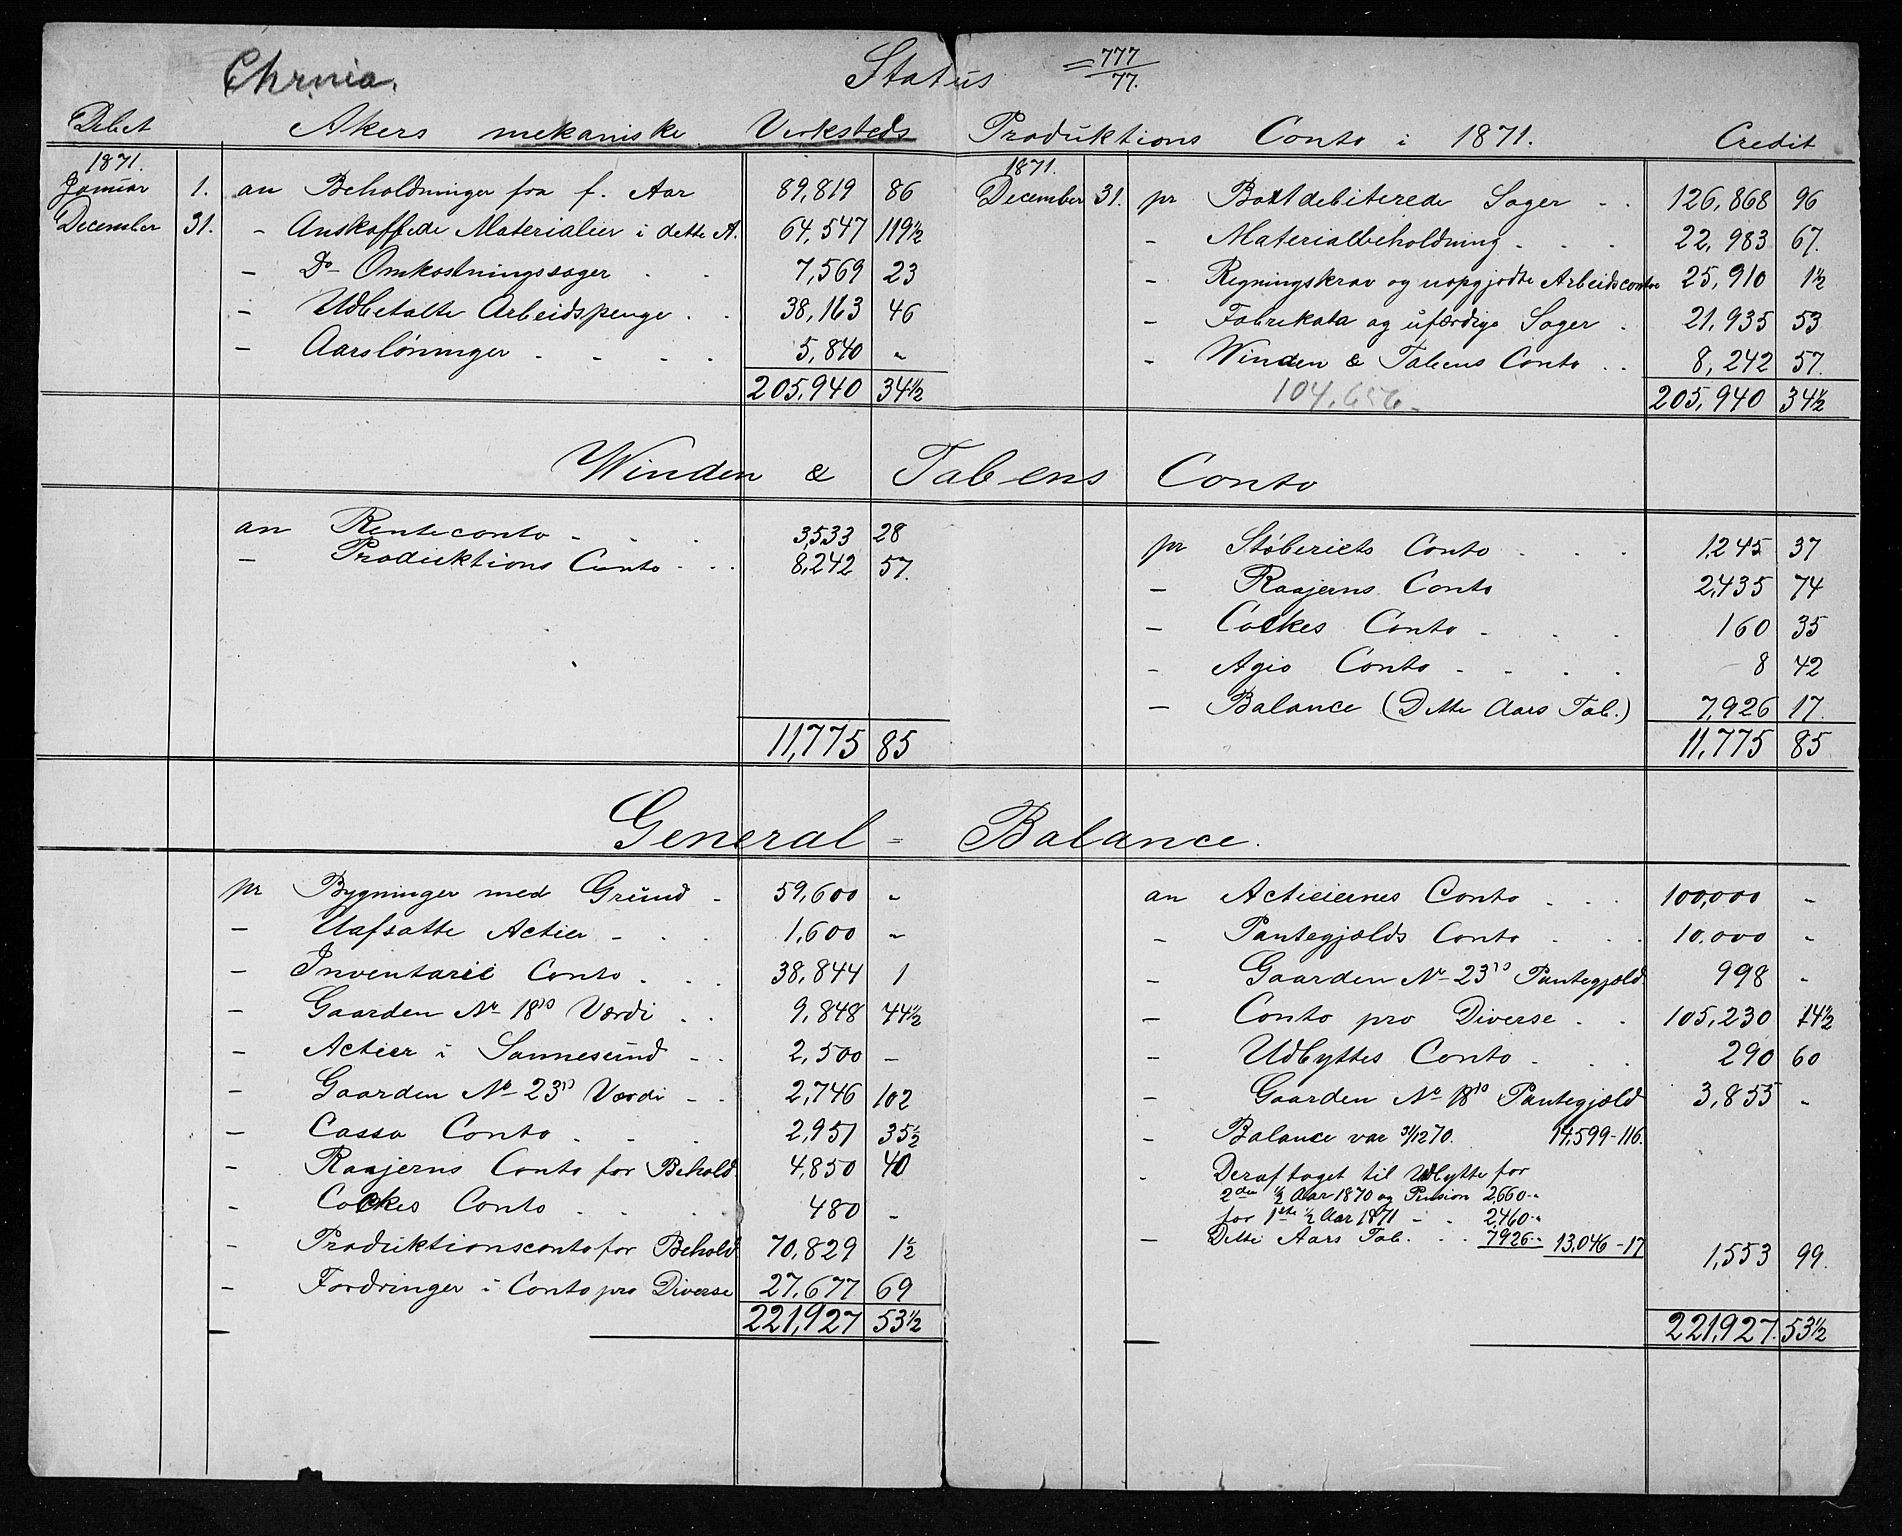 Chrnia.
Status = 777/77.
Debet Akers mekaniske Verksteds Produktions Conto i 1871. Credit
1871.
Januar 1. an Beholdninger fra f. Aar 89,819 86
December 31. - Anskaffede Materialier i dette A. 64,547 119½
- Do Omkostningssager . . 7,569 23
- Udbetalte Arbeidspenge . . 38,163 46
- Aarslønninger . . . . 5,840 "
205,940 34½
1871.
December 31. pr Bortdebiterede Sager . . 126,868 96
- Materialbeholdning . . . 22,983 67.
- Regningskrav og uopgjordte Arbeidsconto 25,910 1½
- Fabrikata og ufærdige Sager . 21,935 53
- Winden & Tabens Conto . . 8,242 57.
104,656 -
205,940 34½
Winden & Tabens Conto
an Renteconto . . . 3533 28
- Produktions Conto . . . 8,242 57.
11,775 85
pr Støberiets Conto . . . 1,245 37
- Raajerns Conto 2,435 74
- Cockes Conto . . . 160 35
- Agio Conto . . . . 8 42
- Balance (Dette Aars Tab.) 7,926 17.
11,775 85
General - Balance.
pr Bygninger med Grund . 59,600 "
- Uafsatte Actier . . . 1,600 "
- Inventarie Conto . . . 38,844 1
- Gaarden No 18ds Værdi . . 9,848 44½
- Actier i Sannesund . . 2,500 -
- Gaarden No 23ds Værdi . . 2,746 102
- Cassa Conto . . . 2,951 35½
- Raajerns Conto for Behold. 4,850 40
- Cockes Conto . . . 480 "
- Produktionsconto for Behold 70,829 1½
- Fordringer i Conto pro Diverse 27,677 69
221,927 53½
an Acticiernes Conto . . . 100,000 "
- Pantegjælds Conto . . . 10,000 "
- Gaarden No 23ds Pantegjæld. 998 "
- Conto pro Diverse . . 105,230 14½
- Udbyttes Conto . . . 290 60
- Gaarden No 18ds Pantegjæld 3,855 "
- Balance var 31/12 70. 14,599-116.
. Deraf taget til Udbytte for
2den ½ Aar 1870 og Pension 2,660 "
for 1ste ½ Aar 1871 . . 2,460 "
- Dette Aars Tab. . . 7926 " 13,046-17 1,553 99.
221,927. 53½